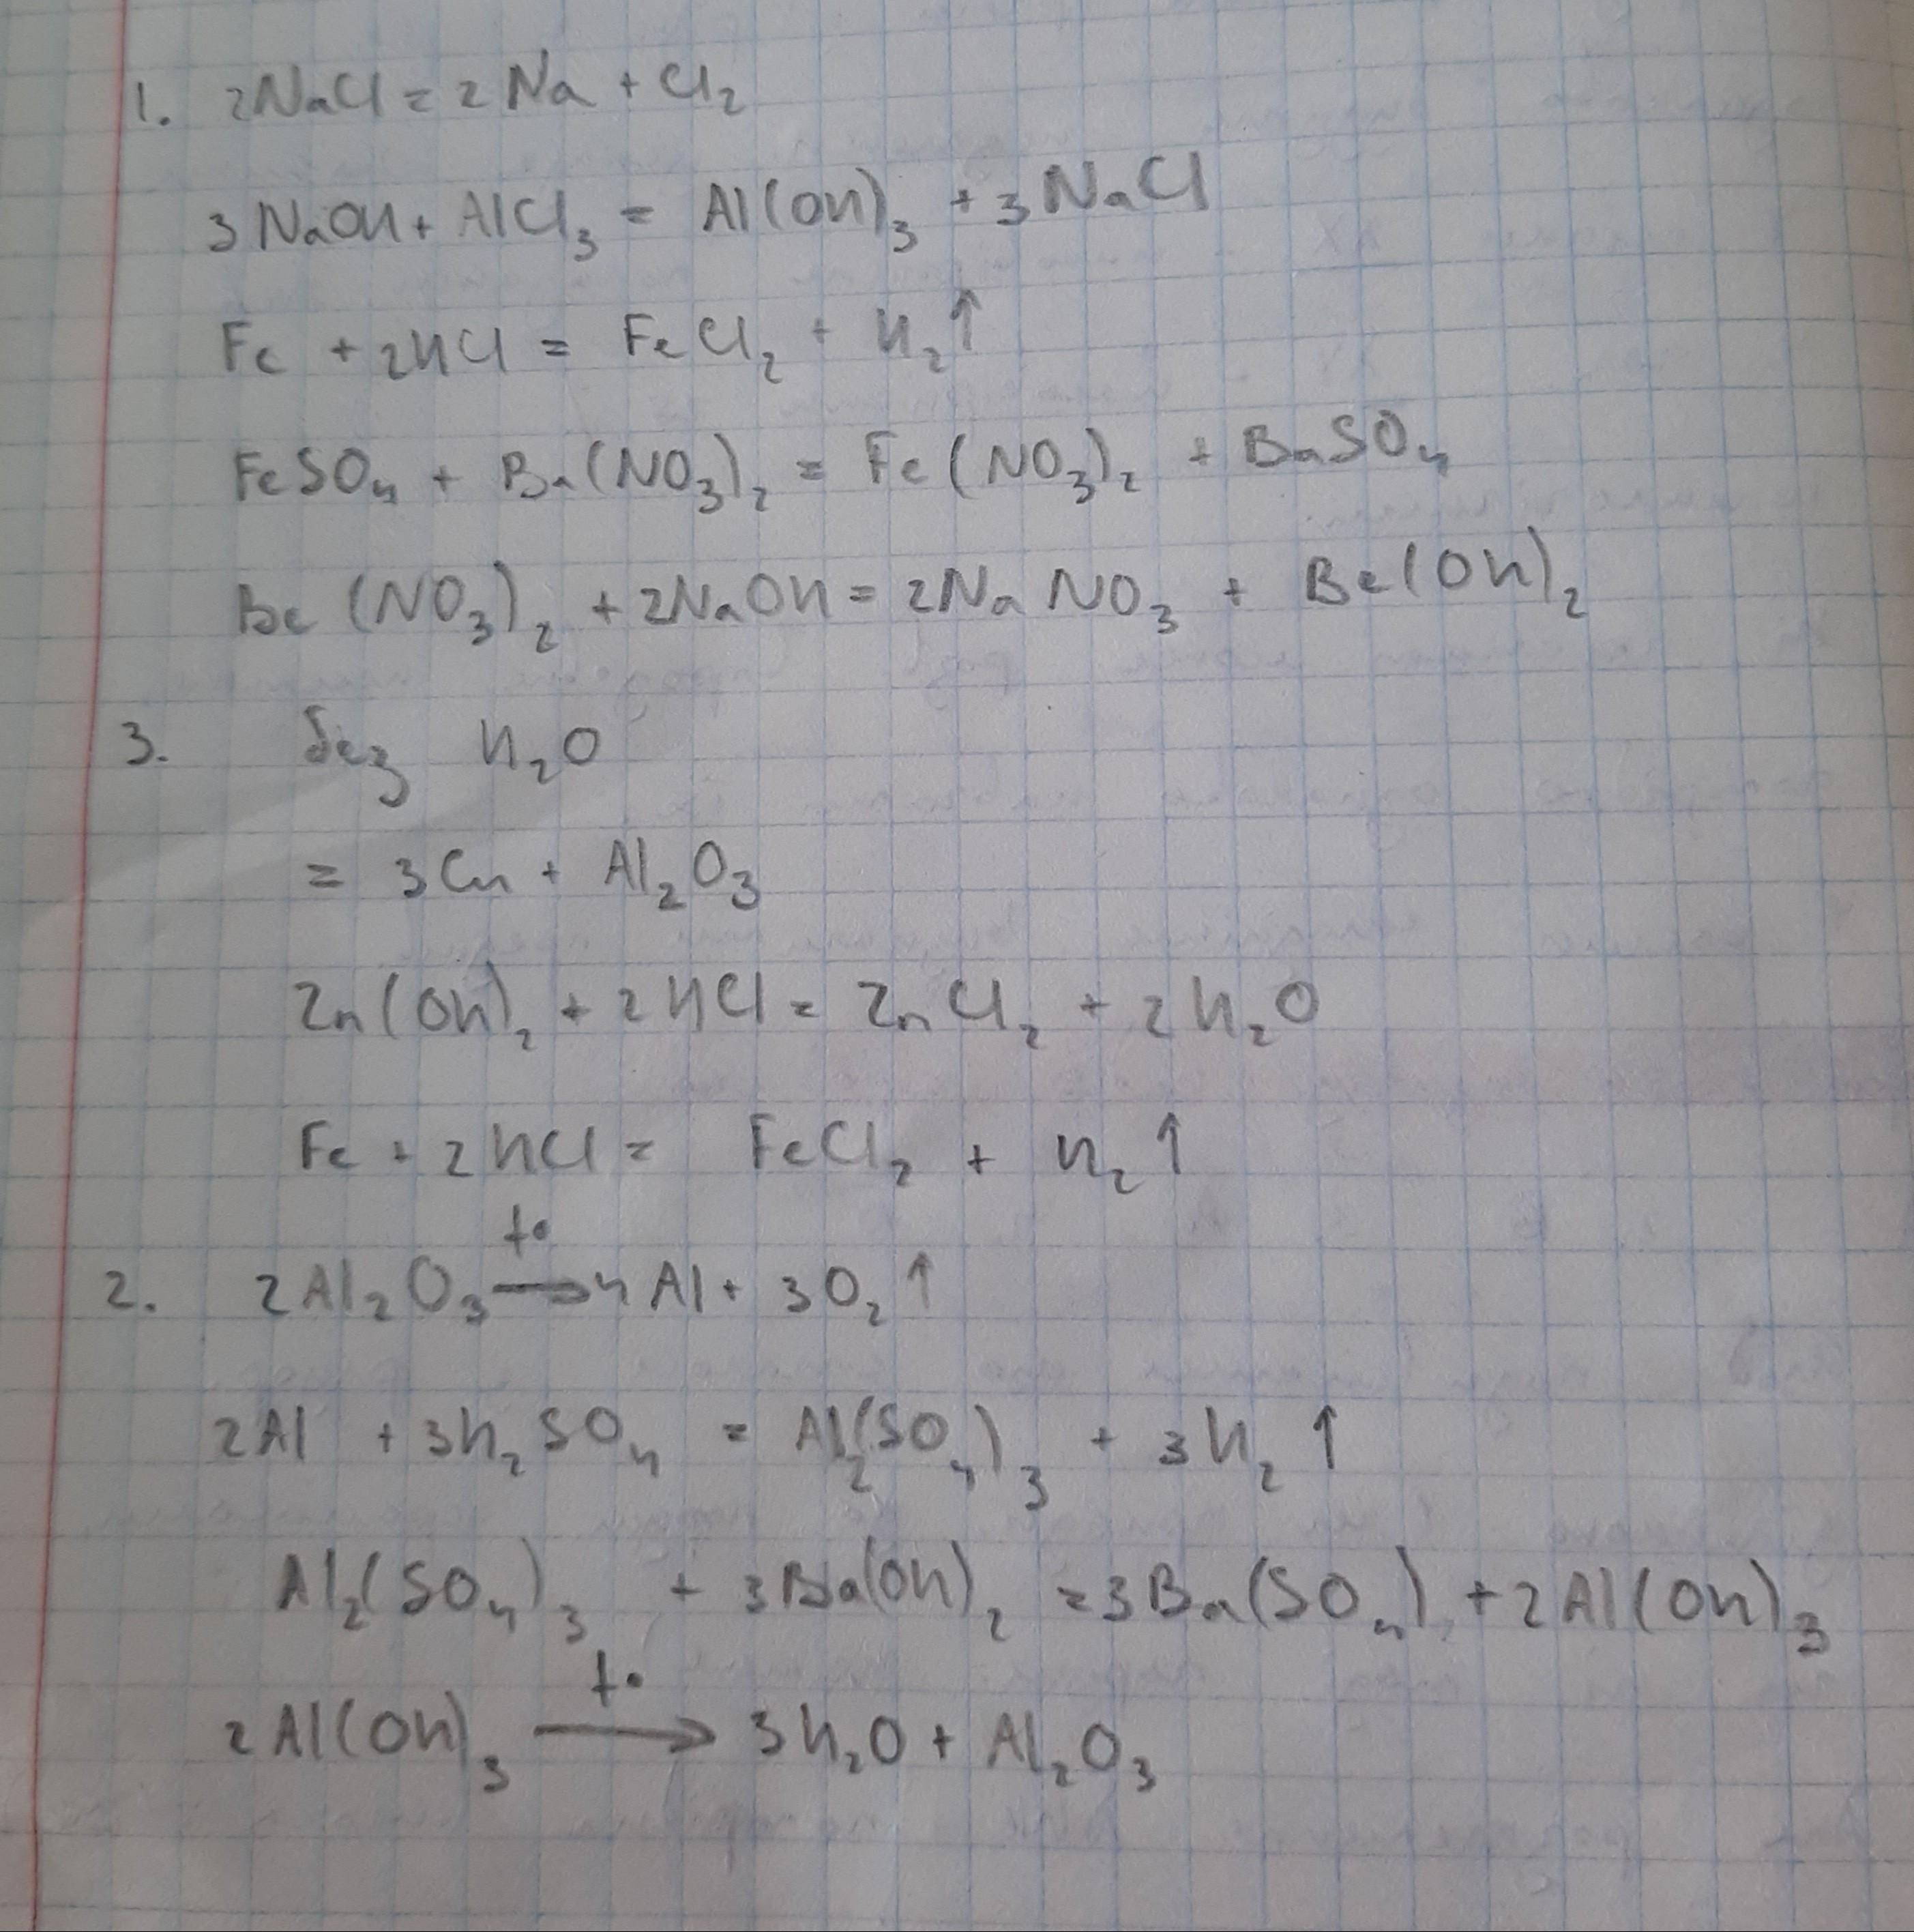 1. 2NaCl = 2Na + Cl₂
3NaOH + AlCl₃ = Al(OH)₃ + 3NaCl
Fe + 2HCl = FeCl₂ + H₂↑
FeSO₄ + Ba(NO₃)₂ = Fe(NO₃)₂ + BaSO₄
Be(NO₃)₂ + 2NaOH = 2NaNO₃ + Be(OH)₂
3. без H₂O
= 3Cu + Al₂O₃
Zn(OH)₂ + 2HCl = ZnCl₂ + 2H₂O
Fe + 2HCl = FeCl₂ + H₂↑
t°
2. 2Al₂O₃ → 4Al + 3O₂↑
2Al + 3H₂SO₄ = Al₂(SO₄)₃ + 3H₂↑
Al₂(SO₄)₃ + 3Ba(OH)₂ = 3Ba(SO₄) + 2Al(OH)₃
t°
2Al(OH)₃ → 3H₂O + Al₂O₃